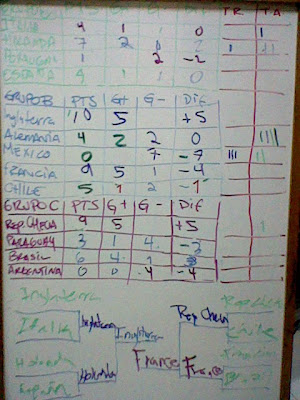 PTS TR TA
4 1 0 I
HOLANDA 7 2
PORTUGAL 2 -2
ESPAÑA 4 1 1 0
GRUPO B PTS G+ G- Dif
Inglaterra 10 5 +5
Alemania 4 2 2 0 IIII
MEXICO 0 7 -7 III
FRANCIA 9 5 1 -4
CHILE 5 1 2 -1
GRUPO C PTS G+ G- Dif
Rep. CHECA 9 5 +5
PARAGUAY 3 1 4 -3
BRASIL 6 4 1
ARGENTINA 0 0 -4 -4
Inglaterra Rep Checa
Italia Inglaterra Rep Checa Chile
Inglaterra
Holanda Holanda France Francia
España